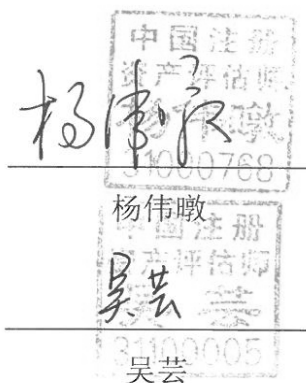 中国注册
资产评估师
杨伟暾
31000768
杨伟暾
杨伟暾
中国注册
资产评估师
吴芸
31100005
吴芸
吴芸